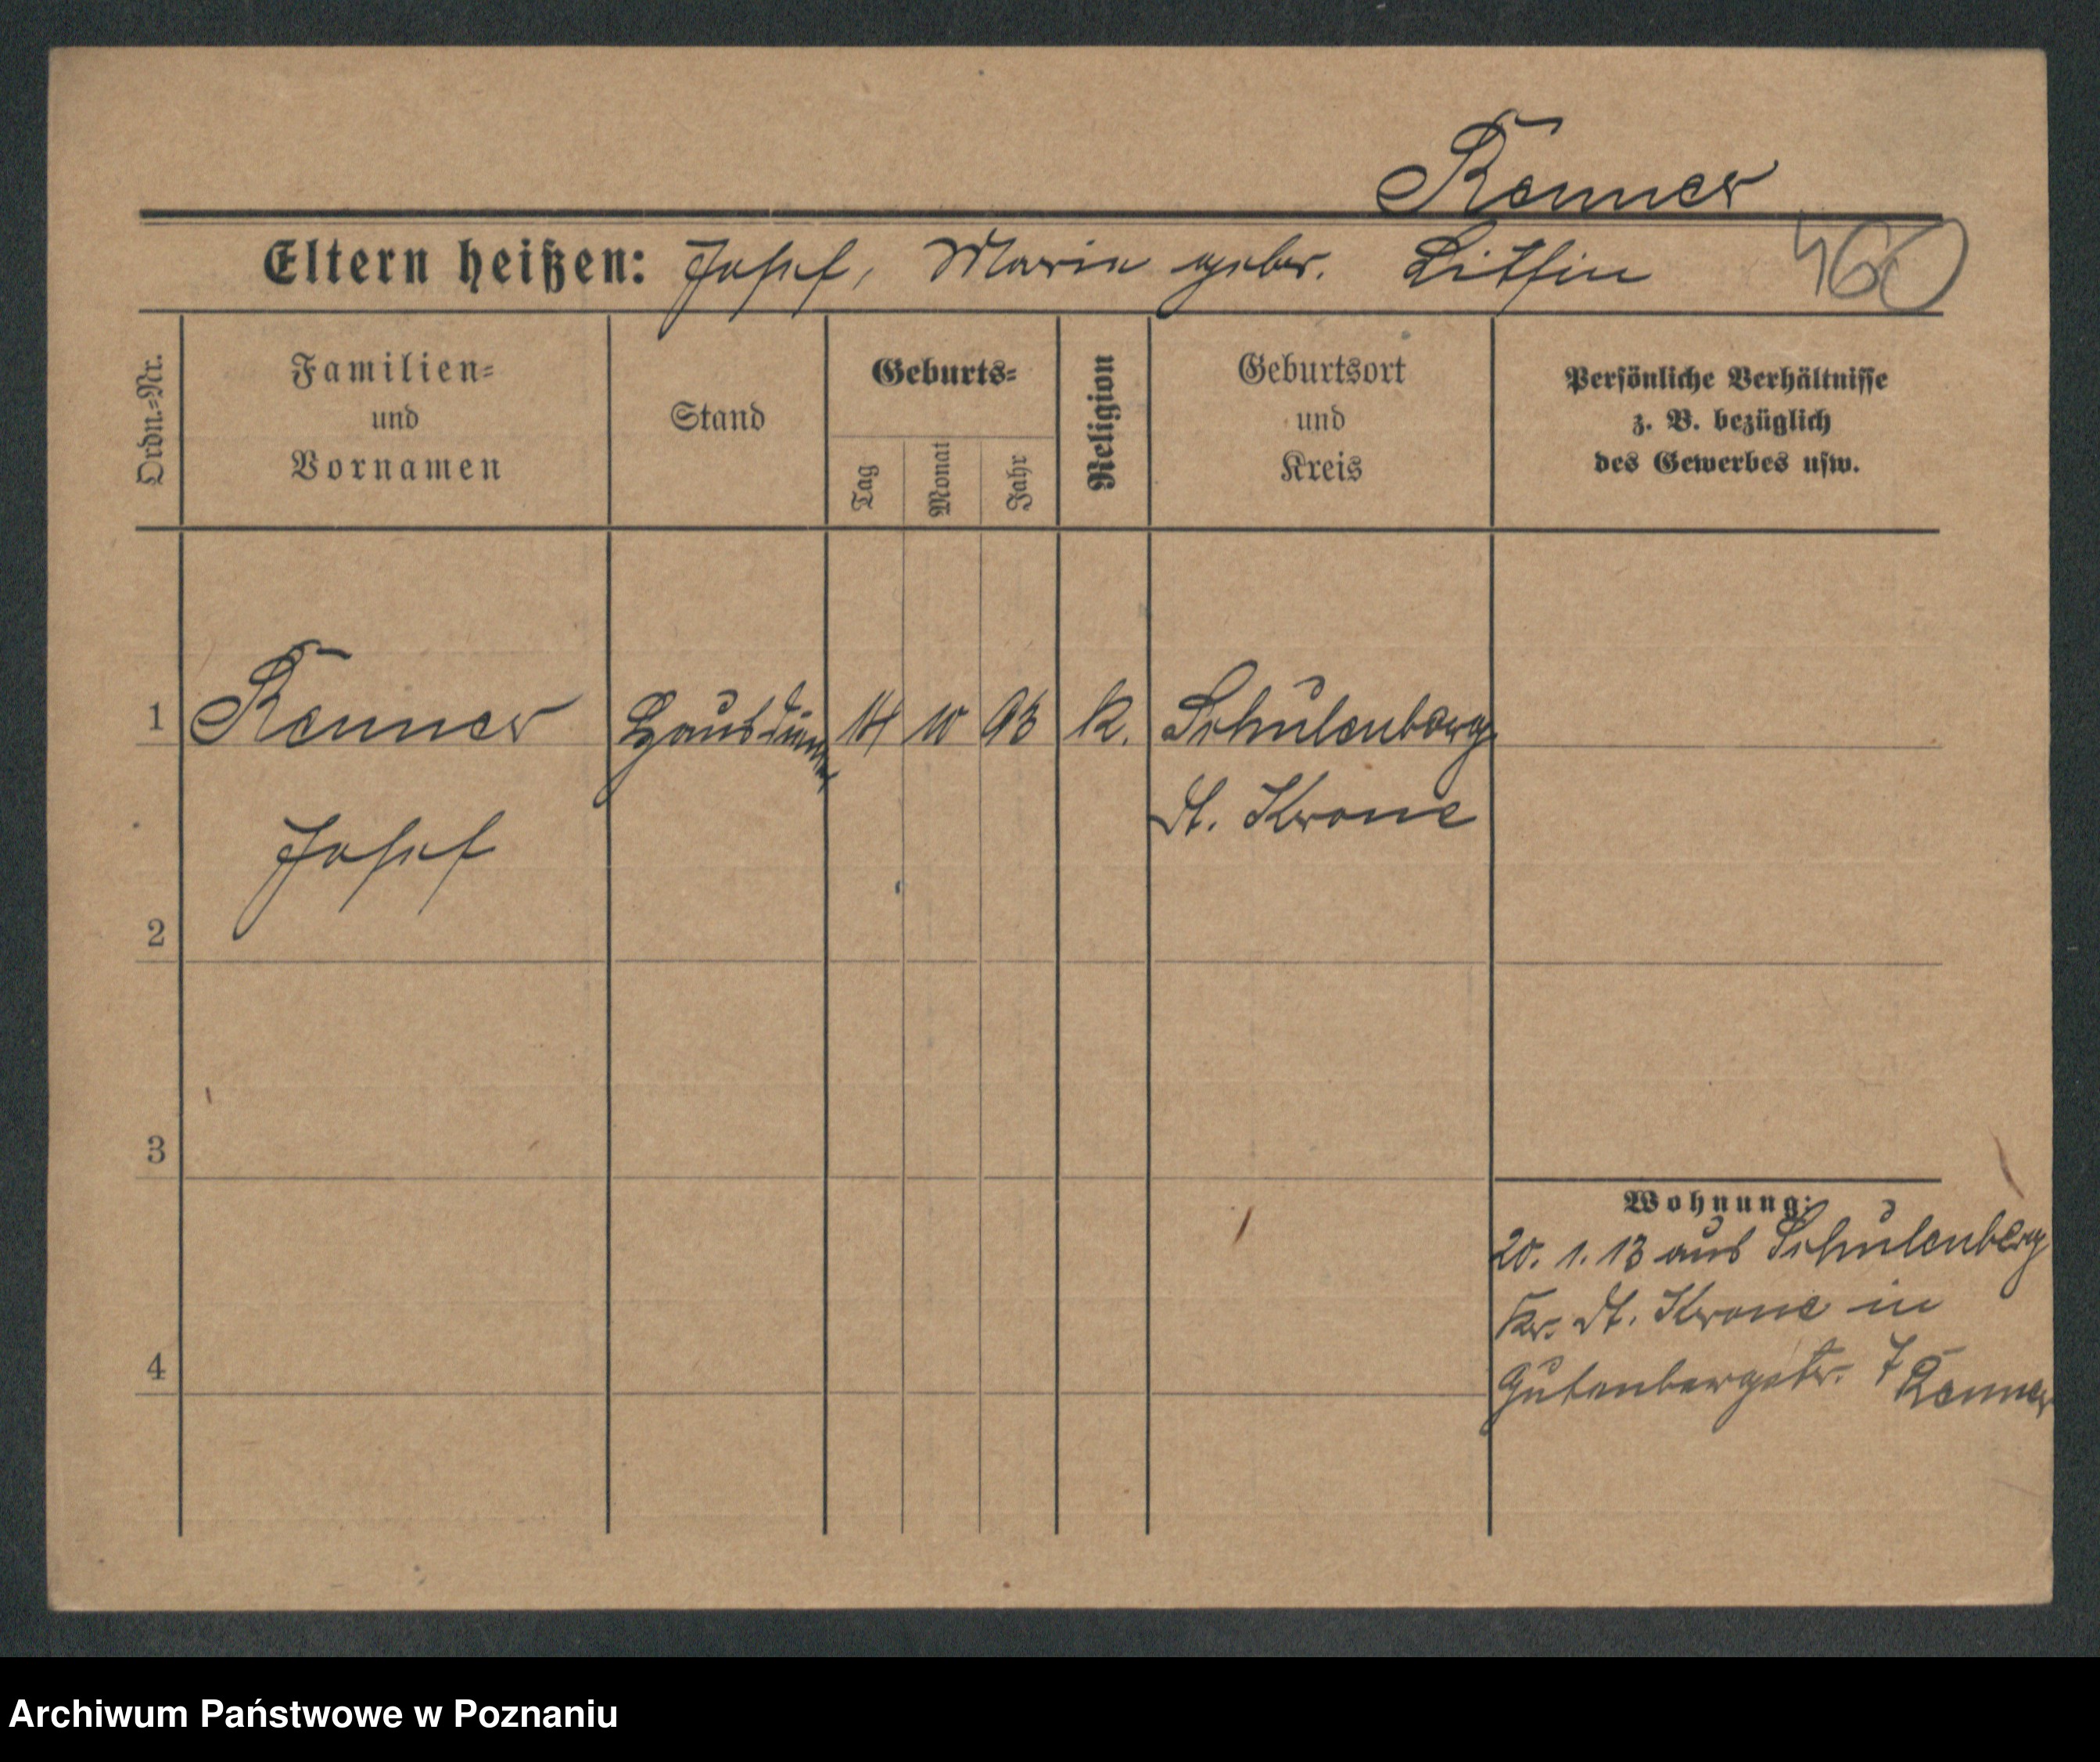 Renner
Eltern heißen: Josef, Maria gebr. Litfin 460
Ordn.=Nr.
Familien=
und
Vornamen
Stand
Geburts=
Tag
Monat
Jahr
Religion
Geburtsort
und
Kreis
Persönliche Verhältnisse
z. B. bezüglich
des Gewerbes usw.
1 Renner Hausdiener 14 10 93 k. Schulenberg
Dt. Krone
Josef
2
3
Wohnung:
20. 1. 13 aus Schulenberg
Kr. Dt. Krone in
Gutenbergstr. 7 Renner
4
Archiwum Państwowe w Poznaniu